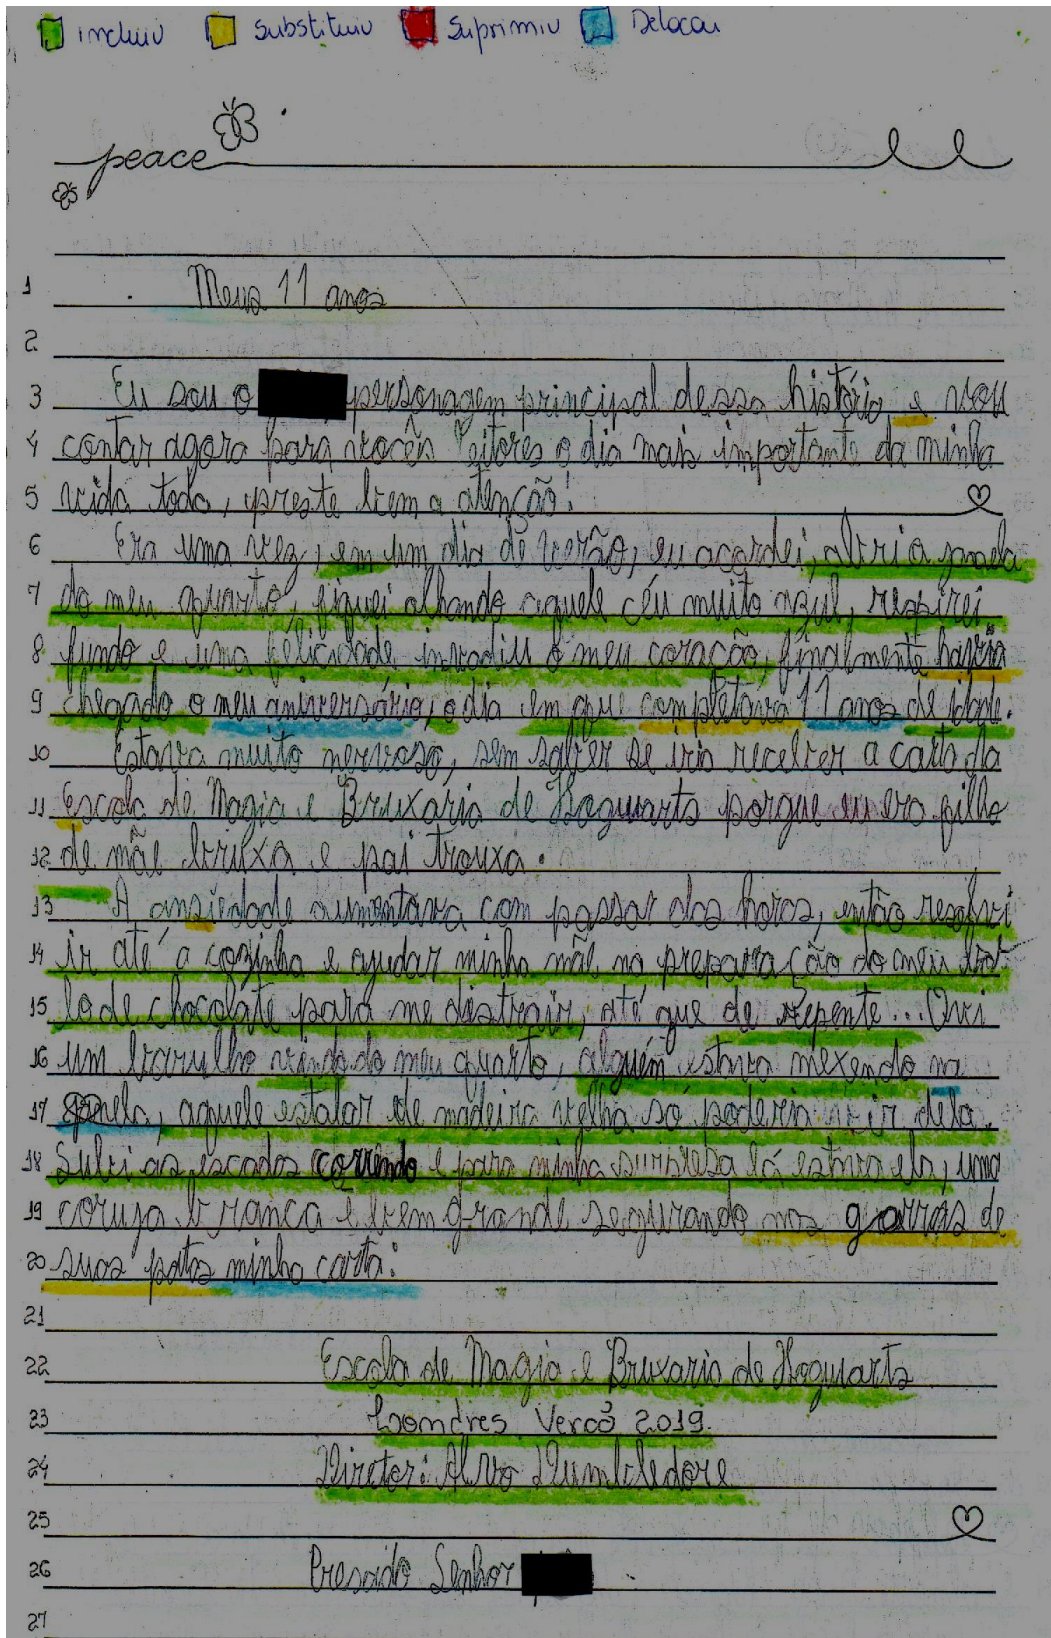 incluiu substituiu Suprimiu Delocou
peace
1 Meus 11 anos
2
3 Eu sou o personagem principal dessa história e vou
4 contar agora para vocês leitores o dia mais importante da minha
5 vida toda, preste bem a atenção!
6 Era uma vez, em um dia de verão, eu acordei, abri a janela
7 do meu quarto, fiquei olhando aquele céu muito azul, respirei
8 fundo e uma felicidade invadiu o meu coração, finalmente havia
9 chegado o meu aniversário, o dia em que completava 11 anos de idade.
10 Estava muito nervoso, sem saber se iria receber a carta da
11 Escola de Magia e Bruxaria de Hoguarts porque eu era filho
12 de mãe bruxa e pai trouxa.
13 A ansiedade aumentava com passar das horas, então resolvi
14 ir até a cozinha e ajudar minha mãe na preparação do meu bo
15 lo de chocolate para me distrair, até que de repente... Ouvi
16 um barulho vindo do meu quarto, alguém estava mexendo na
17 janela, aquele estalar de madeira velha só poderia vir dela.
18 Subi as escadas correndo e para minha surpresa lá estava ela, uma
19 coruja branca e bem grande segurando nas garras de
20 suas patas minha carta:
21
22 Escola de Magia e Bruxaria de Hoguarts
23 Londres Verão 2019.
24 Diretor: Alvo Dumbledore
25
26 Presado Senhor
27